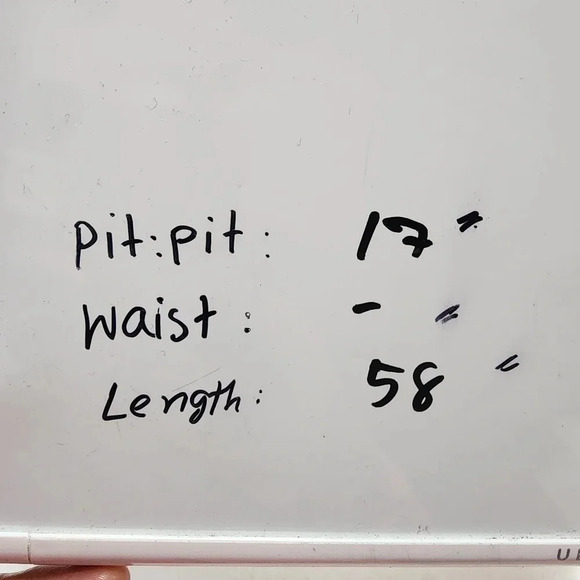 pit:pit: 17"
waist: - "
Length: 58 "